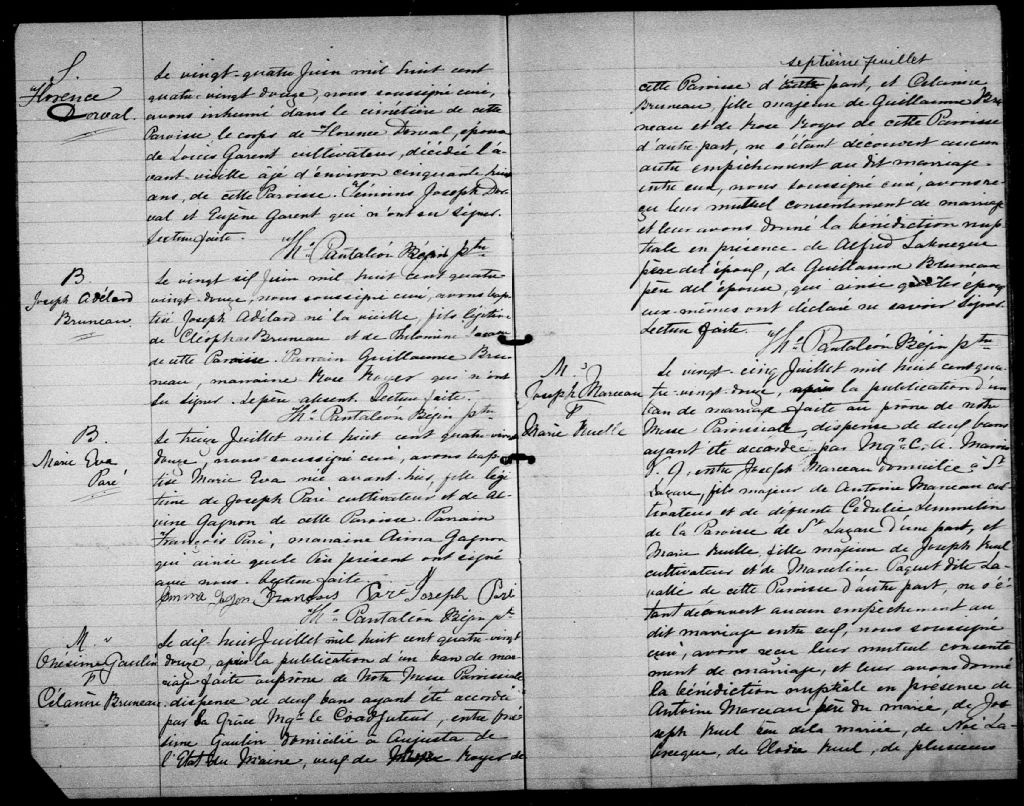 S.
Florence
Dorval.
Le vingt-quatre Juin mil huit cent
quatre-vingt douze, nous soussigné curé,
avons inhumé dans le cimétière de cette
Paroisse le corps de Florence Dorval, épouse
de Louis Garent cultivateur, décédée l'a-
vant-vieille âgé d'environ cinquante huit
ans, de cette Paroisse. Témoins Joseph Dor-
val et Eugène Garent qui n'ont su signer.
Lecture faite.
Ths. Pantaléon Bégin ptre
B
Joseph Adélard
Bruneau
Le vingt six Juin mil huit cent quatre
vingt-douze, nous soussigné curé, avons bap-
tisé Joseph Adélard né la vieille, fils légitime
de Cléophas Bruneau et de Philomine
de cette Paroisse. Parrain Guillaume Bru-
neau, marraine Rose Royer qui n'ont
su signer. Le père absent. Lecture faite.
Ths. Pantaléon Bégin ptre
B.
Marie Eva
Paré
Le treize Juillet mil huit cent quatre-vingt
douze, nous soussigné curé, avons bap-
tisé Marie Eva née avant-hier, fille légi-
time de Joseph Paré cultivateur et de Al-
vine Gagnon de cette Paroisse. Parrain
François Paré, marraine Anna Gagnon
qui ainsi que le Père présent ont signé
avec nous. Lecture faite.
François Paré Joseph Paré
Ths. Pantaléon Bégin pt
M.
Onésime Gaulin
&
Célanire Bruneau
Le dix-huit Juillet mil huit cent quatre-vingt
douze, après la publication d'un ban de ma-
riage faite au prône de Notre Messe Paroissiale
dispense de deux bans ayant été accordée
par Sa Grâce Mgr. le Coadjuteur, entre Oné-
sime Gaulin domicilié à Augusta de
l'Etat du Maine, veuf de Royer de
septième feuillet
cette Paroisse d'une part, et Célanire
Bruneau, fille majeure de Guillaume Bru-
neau et de Rose Royer de cette Paroisse
d'autre part, ne s'étant découvert aucun
autre empêchement au dit mariage
entre eux, nous soussigné curé, avons re-
çu leur mutuel consentement de mariage
et leur avons donné la bénédiction nup-
tiale en présence de Alfred Labrecque
père de l'époux, de Guillaume Bruneau
père de l'épouse, qui ainsi que les époux
eux-mêmes ont déclaré ne savoir signer.
Lecture faite.
Ths. Pantaléon Bégin ptre
M.
Joseph Marceau
&
Marie Ruelle
Le vingt-cinq Juillet mil huit cent qua-
tre-vingt-douze, après la publication d'un
ban de mariage faite au prône de notre
Messe Paroissiale, dispense de deux bans
ayant été accordée par Mgr. C. A. Marois
V. G. entre Joseph Marceau domicilié à St
Lazare, fils majeur de Antoine Marceau cul-
tivateur et de défunte Cédulie Lemmelin
de la Paroisse de St Lazare d'une part, et
Marie Ruelle, fille majeure de Joseph Ruel
cultivateur et de Marceline Paquet dite La-
valle de cette Paroisse d'autre part, ne s'é-
tant découvert aucun empêchement au
dit mariage entre eux, nous soussigné
curé, avons reçu leur mutuel consente-
ment de mariage, et leur avons donné
la bénédiction nuptiale en présence de
Antoine Marceau père du marié, de Jos-
seph Ruel père de la mariée, de Noé La-
brecque, de Elodie Ruel, de plusieurs